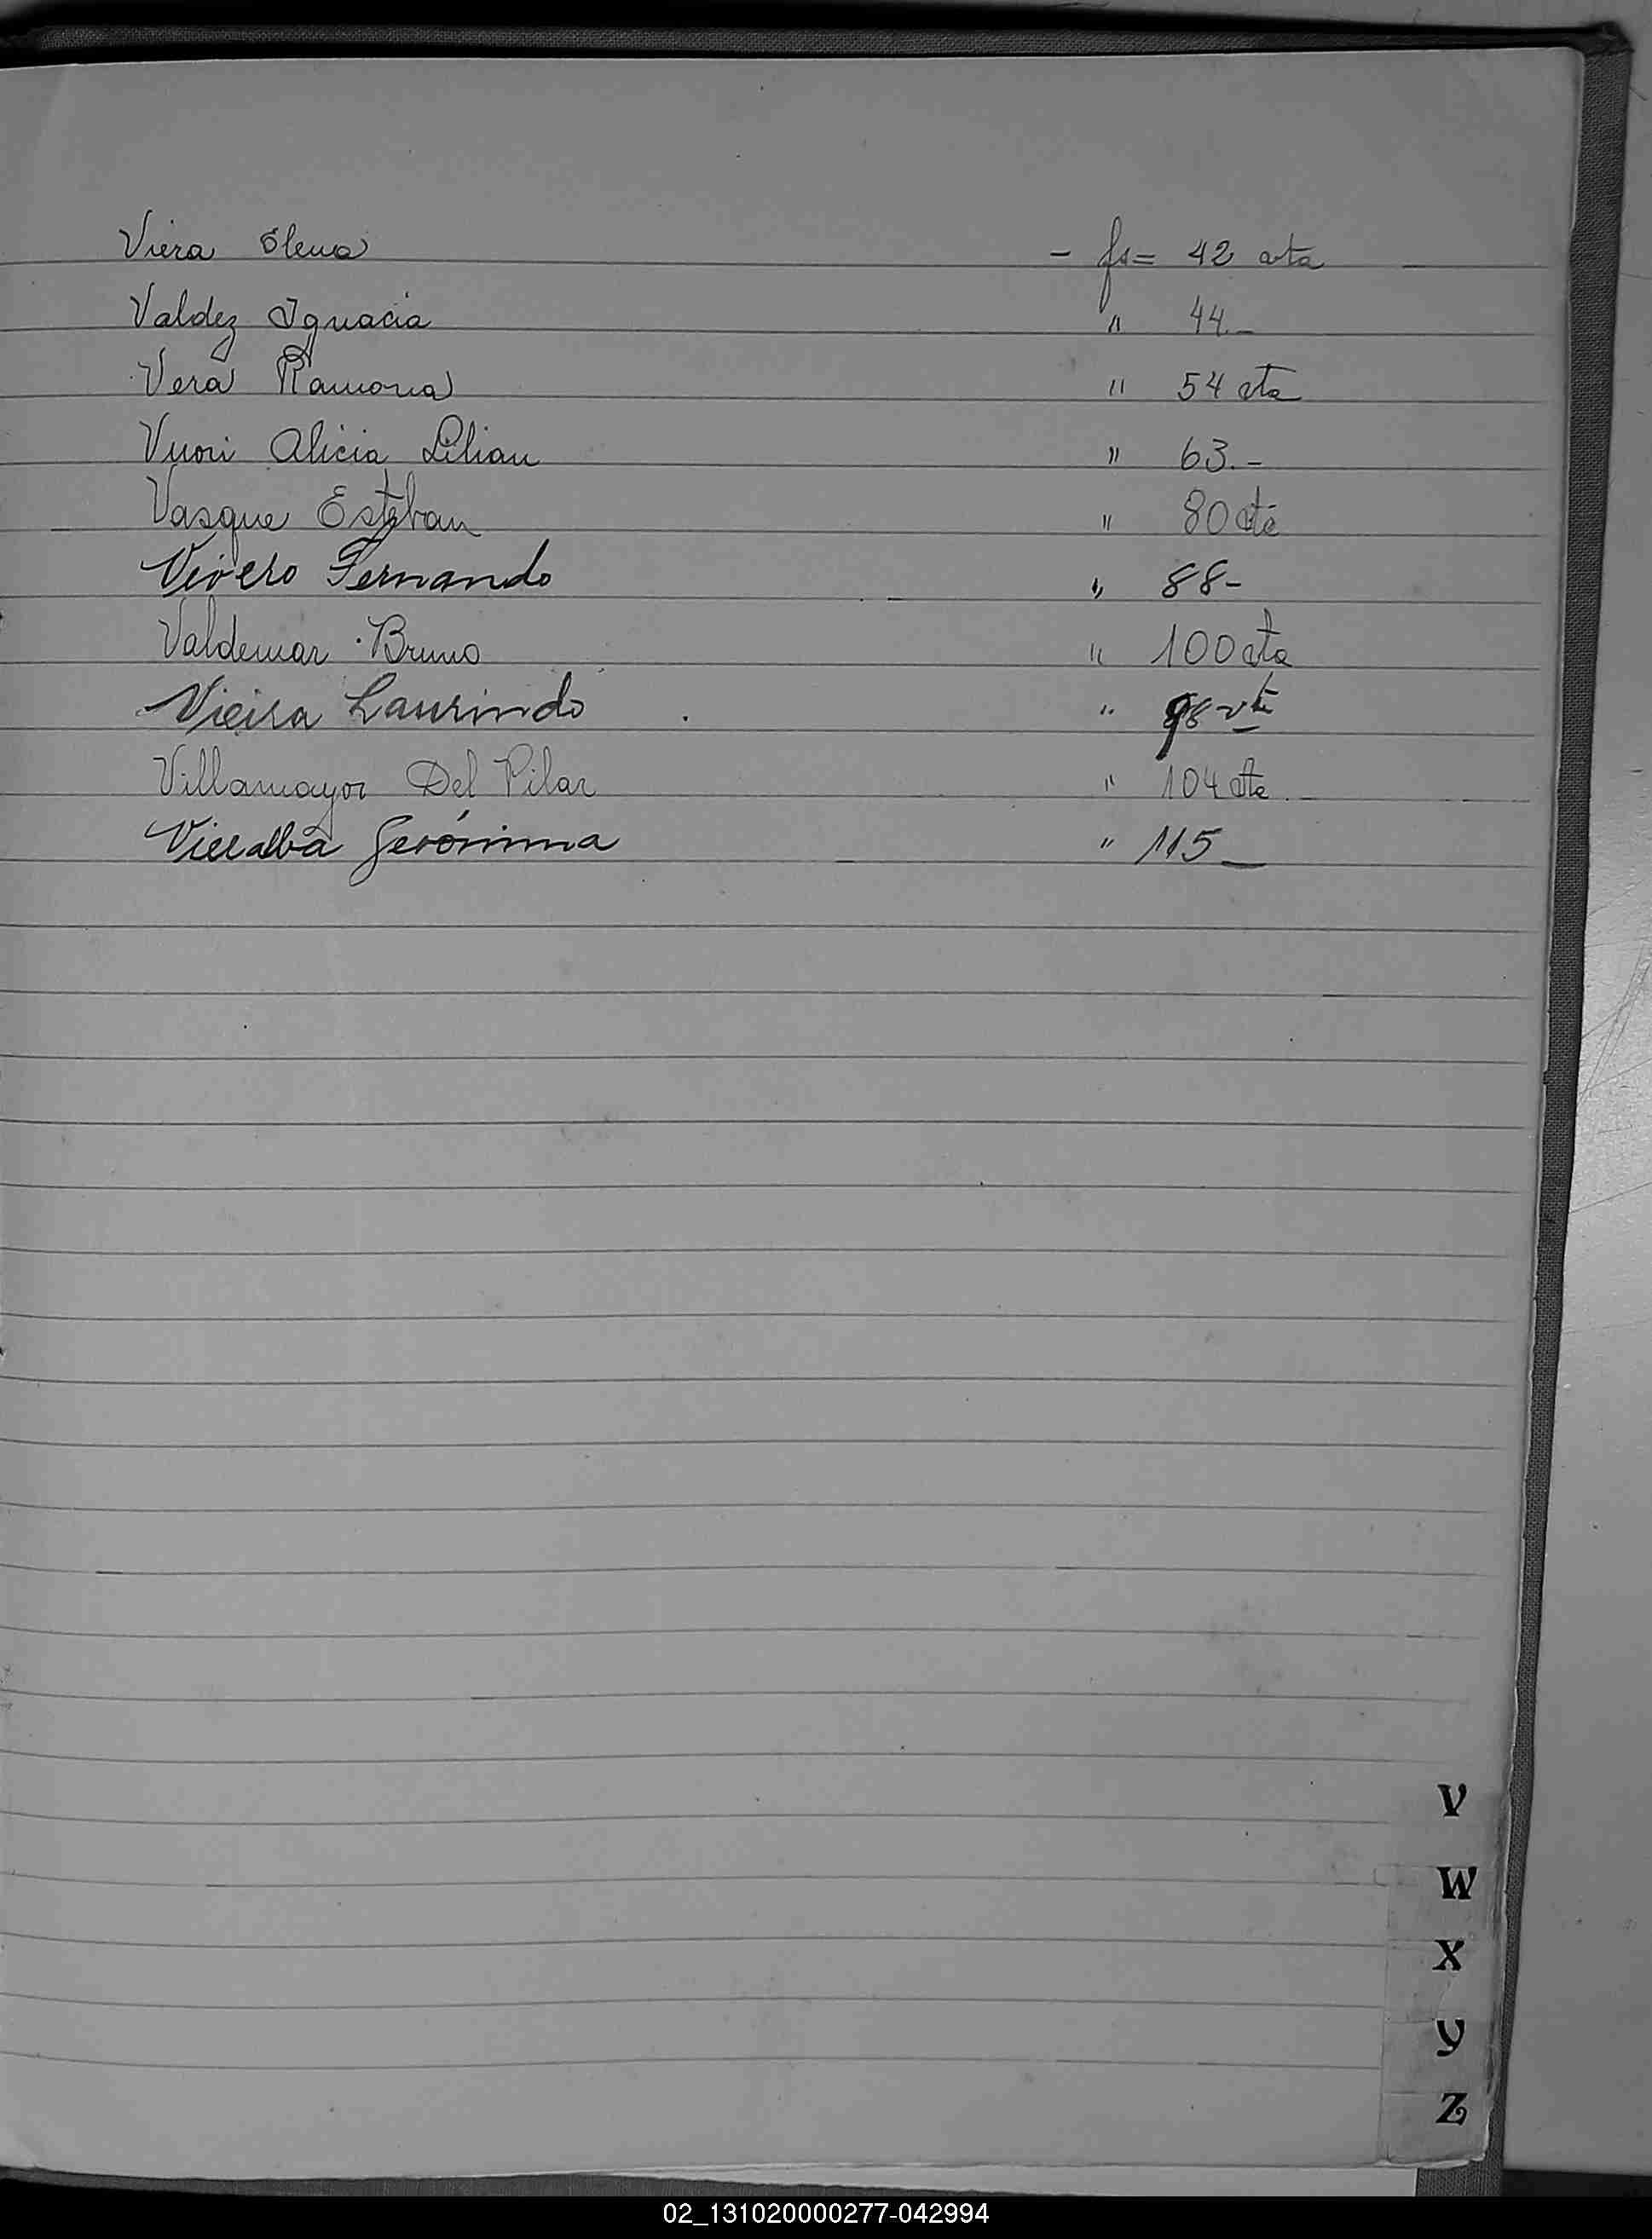 Viera Elena - fs= 42 vta
Valdez Ignacia " 44.-
Vera Ramona " 54 vta
Vuori Alicia Lilian " 63.-
Vasque Esteban " 80 vta
Vivero Fernando " 88-
Valdemar Bruno " 100 vta
Vieira Laurindo " 98 vta
Villamayor Del Pilar " 104 vta
Villalba Gerónima " 115
V
W
X
Y
Z
02_131020000277-042994